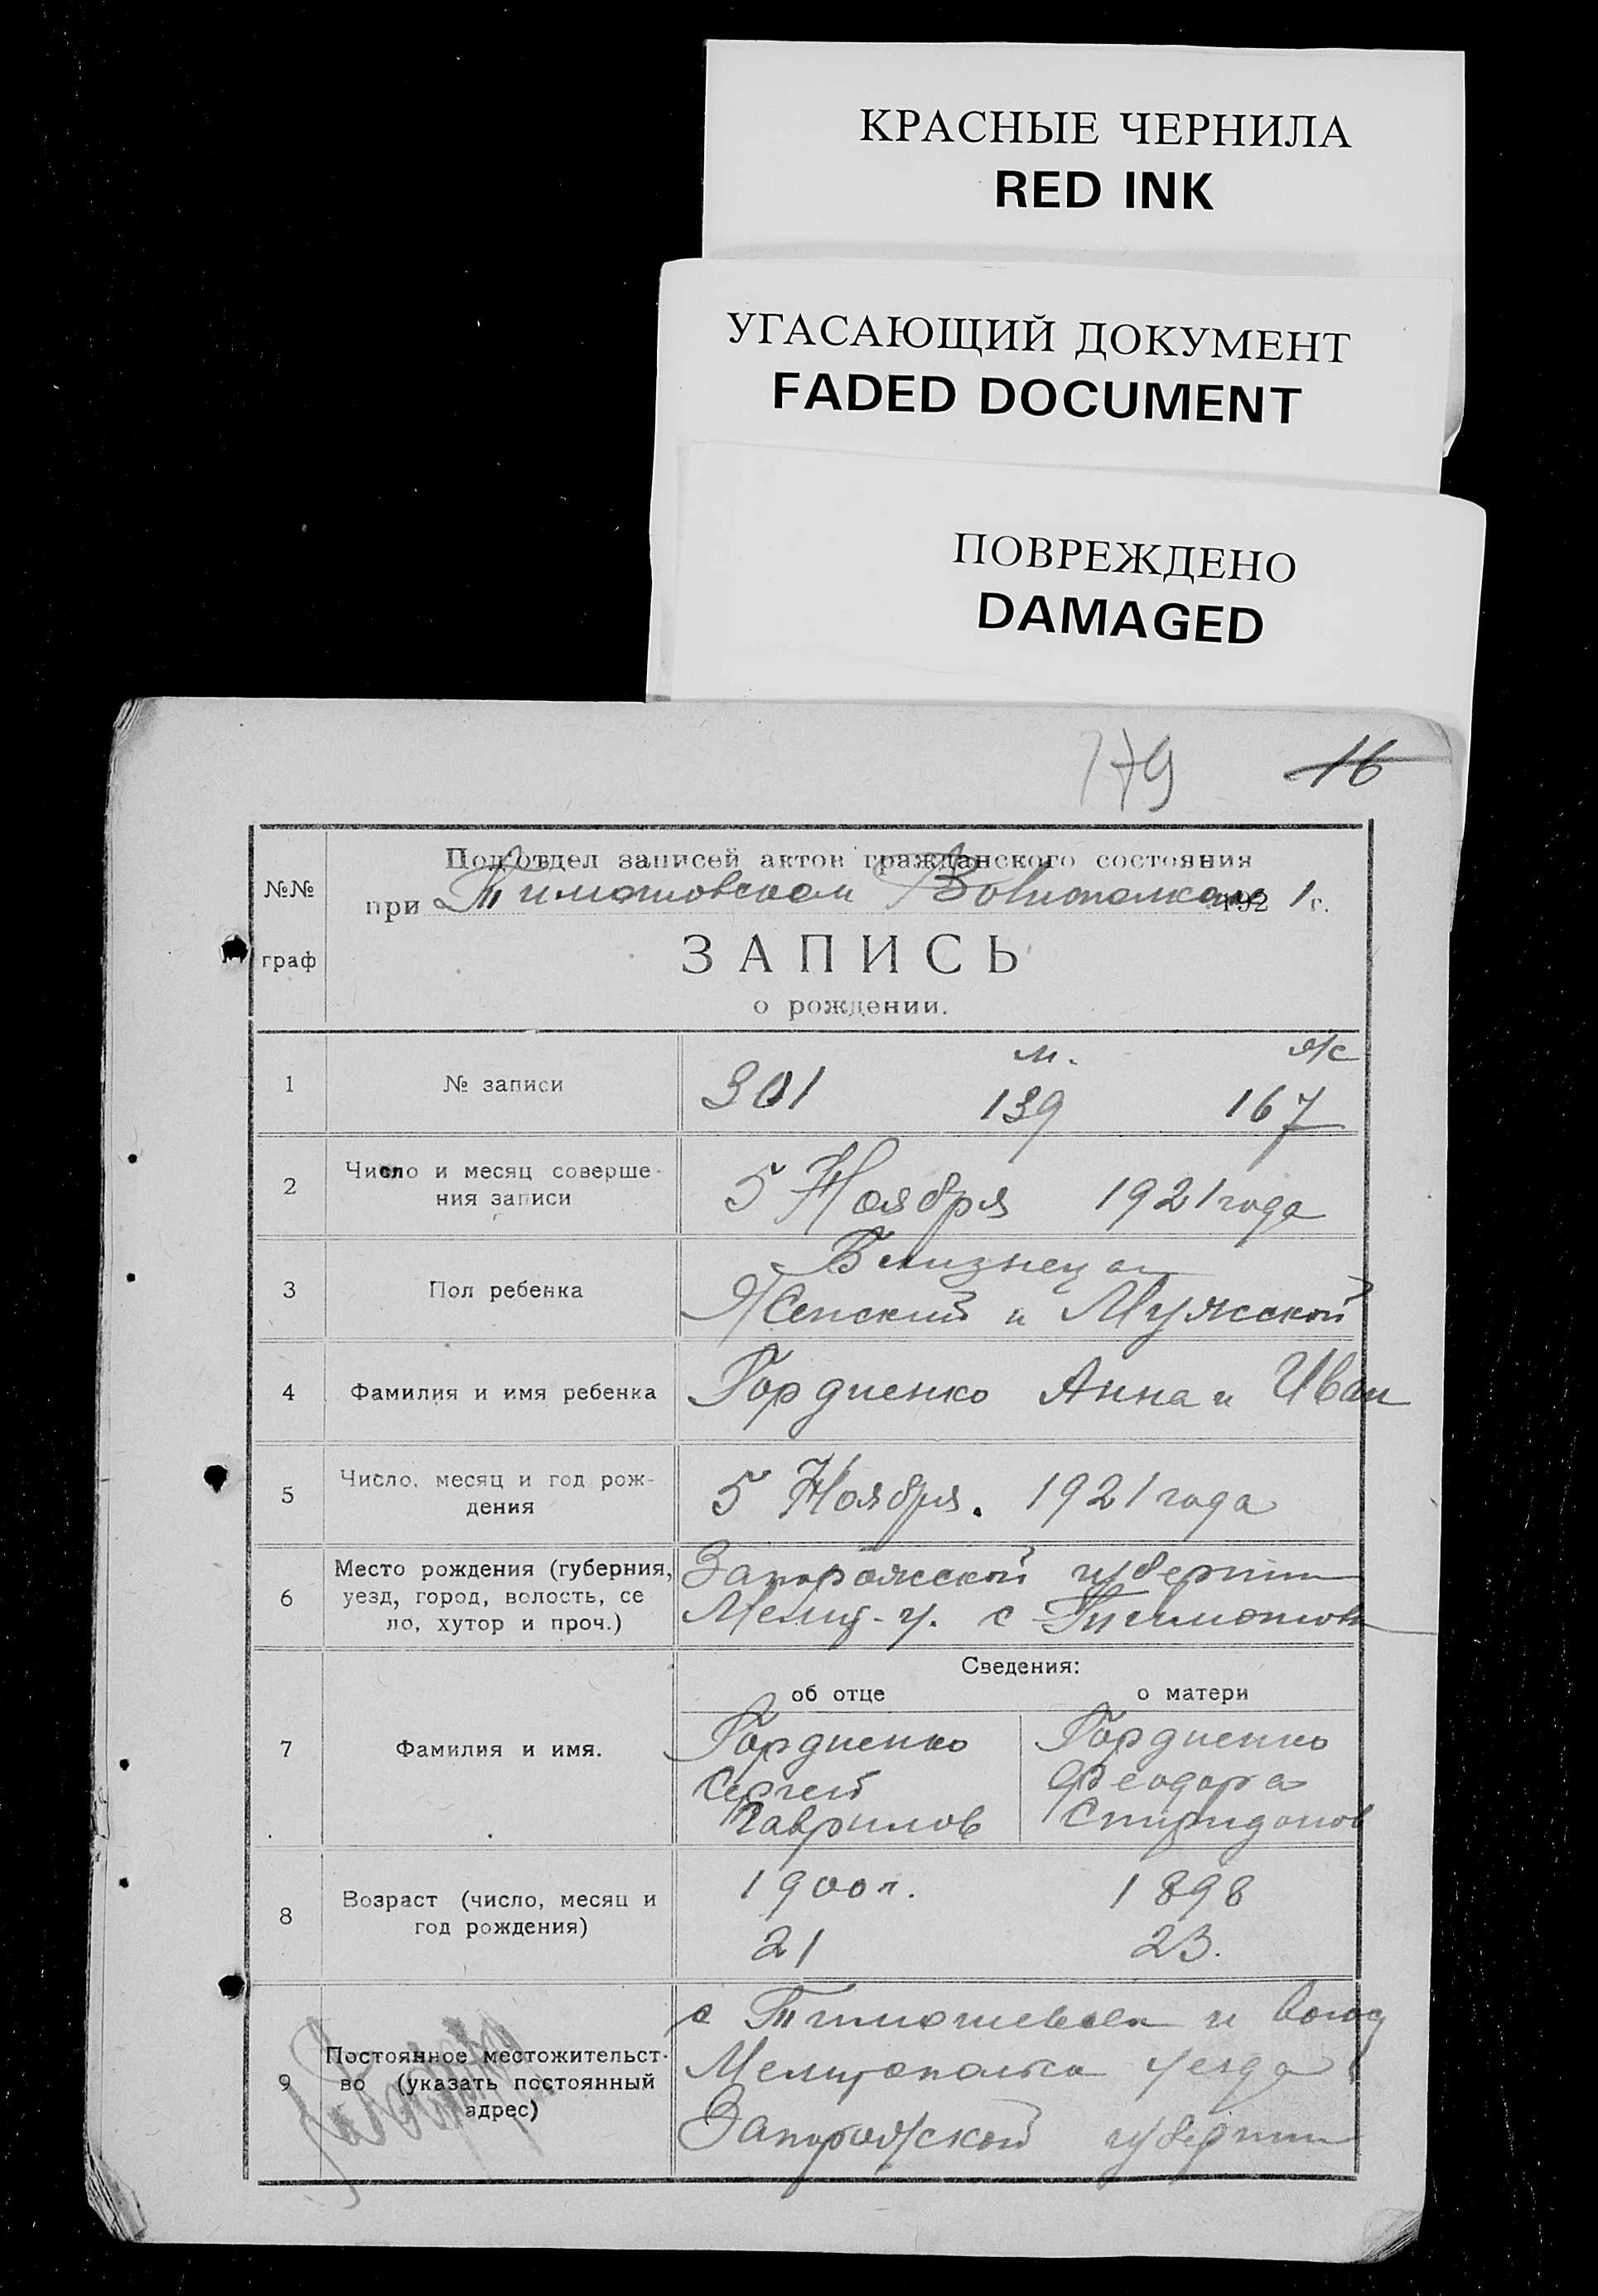 КРАСНЫЕ ЧЕРНИЛА
RED INK
УГАСАЮЩИЙ ДОКУМЕНТ
FADED DOCUMENT
ПОВРЕЖДЕНО
DAMAGED
179 16
№№ граф
Подотдел записей актов гражданского состояния
при Тимошовском 1921 г.
ЗАПИСЬ
о рождении.
м. ж
1 № записи 301 139 167
2 Число и месяц совершения записи 5 Ноября 1921 года
Близнецы
3 Пол ребенка Женский и Мужской
4 Фамилия и имя ребенка Гордиенко Анна и Иван
5 Число, месяц и год рождения 5 Ноября. 1921 года
6 Место рождения (губерния, Запорожской губернии
уезд, город, волость, се Мелит. у. с Тимошов
ло, хутор и проч.)
Сведения:
об отце о матери
7 Фамилия и имя. Гордиенко Гордиенко
Сергей Феодора
Гаврилов Спиридонов
8 Возраст (число, месяц и год рождения) 1900 г. 1898
21 23.
с Тимошевка и волос
9 Постоянное местожительст- Мелитопольск уезда
во (указать постоянный
адрес) Запорожской губернии